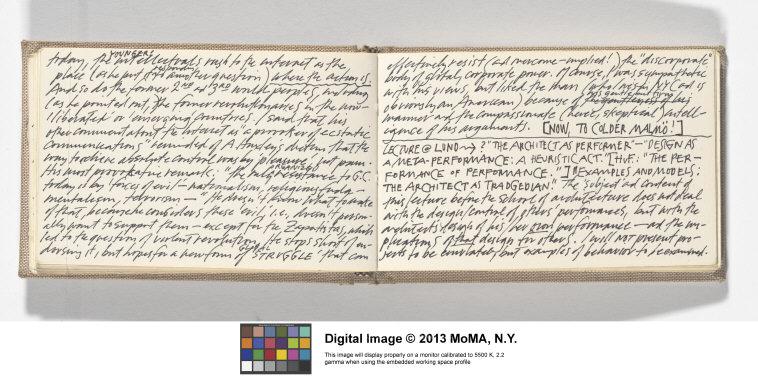 YOUNGER
today, the intellectuals rush to the internet as the
place (as he put it responding to another question) where the action is.
And so do the former 2nd and 3rd world peoples, including
(as he pointed out) the former revolutionaries in the now-
'liberated' or 'emerging' countries. I said that his
other comment about the internet as a provoker of ecstatic
communication reminded of A. Huxley's dictum that the
way to achieve absolute control was by pleasure, not pain.
His most provocative remark: "the only organized resistance to G.C.
today is by 'forces of evil' - nationalism, religious funda-
mentalism, terrorism — "He doesn't know what to make
of that, because he considers these 'evil', i.e. doesn't person-
ally want to support them - except for the Zapatistas, which
led to the question of violent revolution. He stops short of en-
dorsing it, but hopes for a new form of 'global STRUGGLE' that can
effectively resist (and overcome - implied!) the "discorporate"
body of global, corporate power. Of course, I was sympathetic
with his views, but liked the man (who lives in NY and is
obviously an American) because of the gentleness of his
manner and the compassionate (never, skeptical) intell-
igence of his arguments. [NOW, TO COLDER MALMÖ!]
LECTURE @ LUND → ? "THE ARCHITECT AS PERFORMER" - "DESIGN AS
A META-PERFORMANCE: A HEURISTIC ACT." [THUF: "THE PER-
FORMANCE OF PERFORMANCE."] EXAMPLES AND MODELS:
THE ARCHITECT AS TRADGEDIAN." The subject and content of
this lecture before the school of architecture does not deal
with the design/control of others' performances, but with the
architect's design of his/her own performance - and the im-
plications of that design for others. I will not present pro-
jects to be emulated, but examples of behavior to be examined.
Digital Image © 2013 MoMA, N.Y.
This image will display properly on a monitor calibrated to 5500 K, 2.2
gamma when using the embedded working space profile